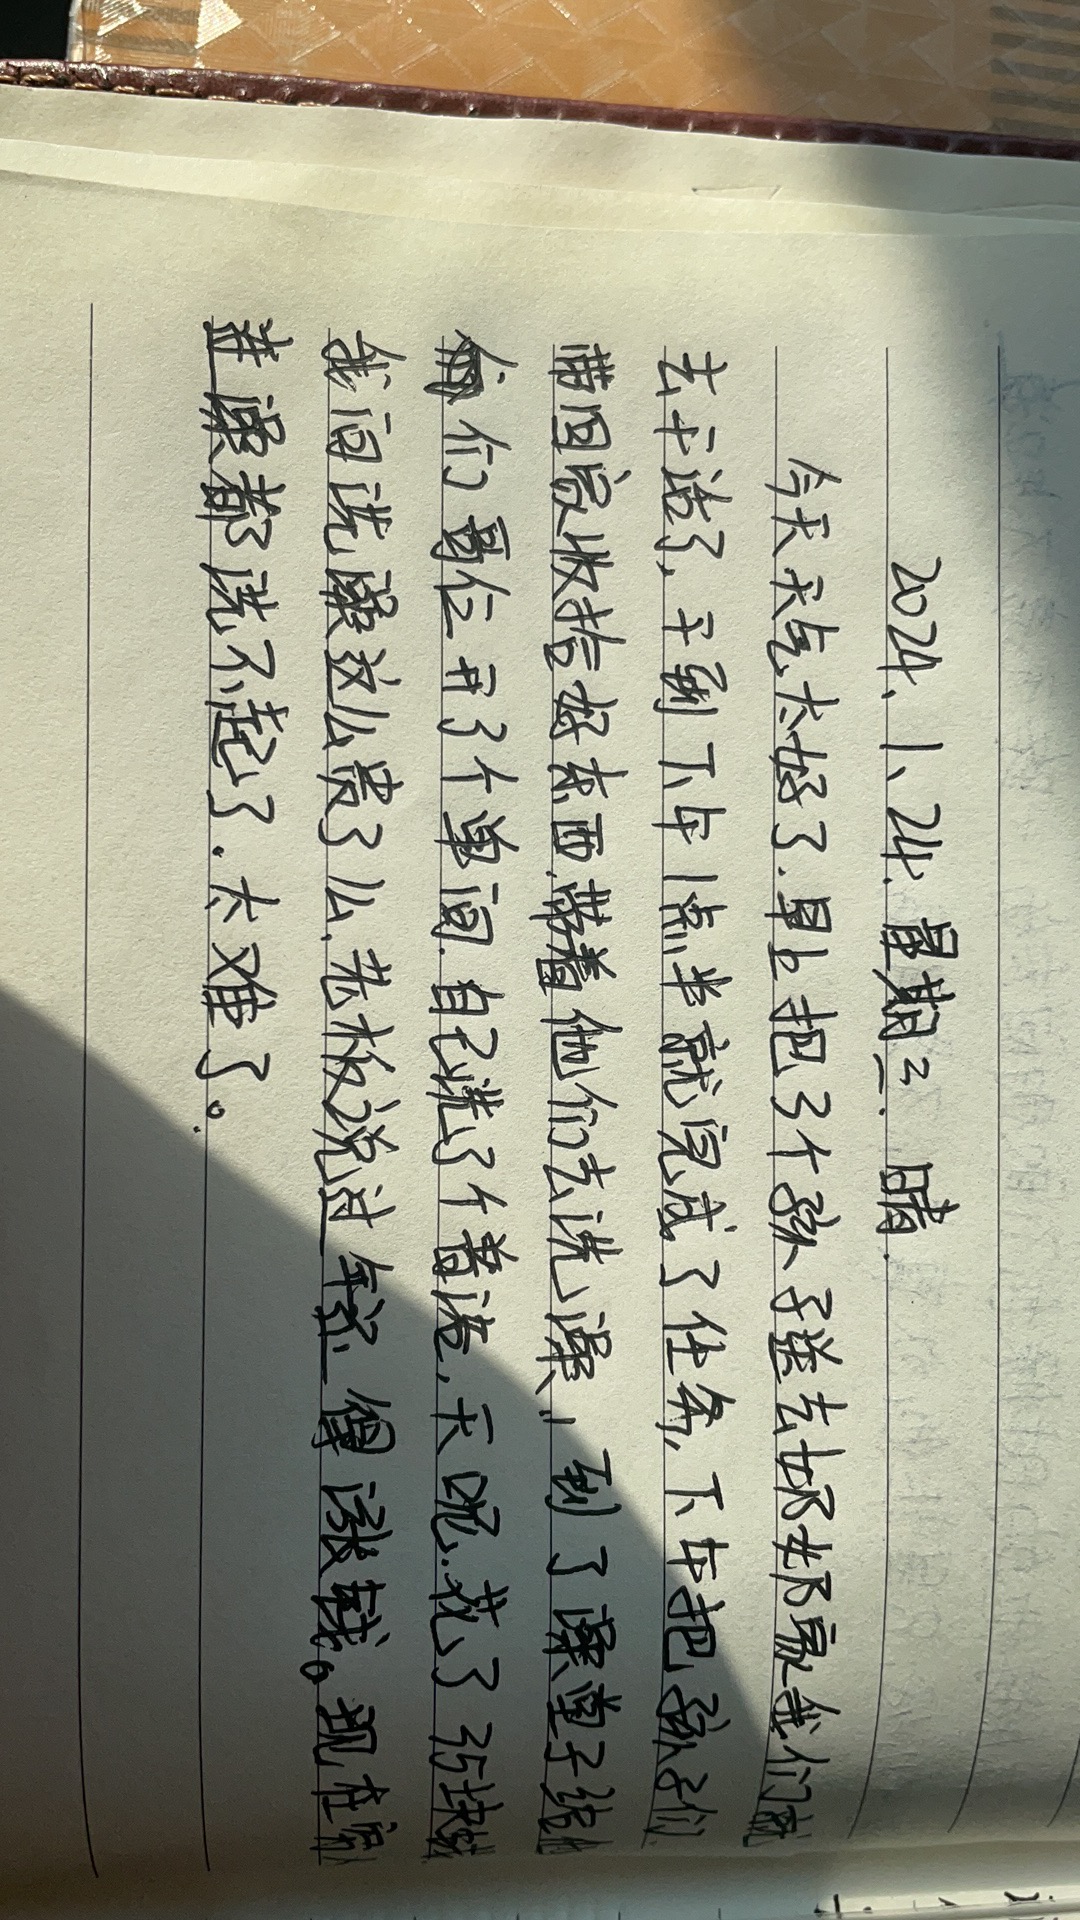 2024、1、24、星期三. 晴.
今天天气太好了.早上把3个孙子送去奶奶家我们就
去干活了,干到下午1点半就完成了任务,下午把孙子们
带回家收拾好东西,带着他们去洗澡,到了澡堂子给
他们哥仨开了个单间.自己洗了个普浴,天呢.花了35块
我问洗澡这么贵了么,老板说过年还得涨钱。现在
连澡都洗不起了.太难了。